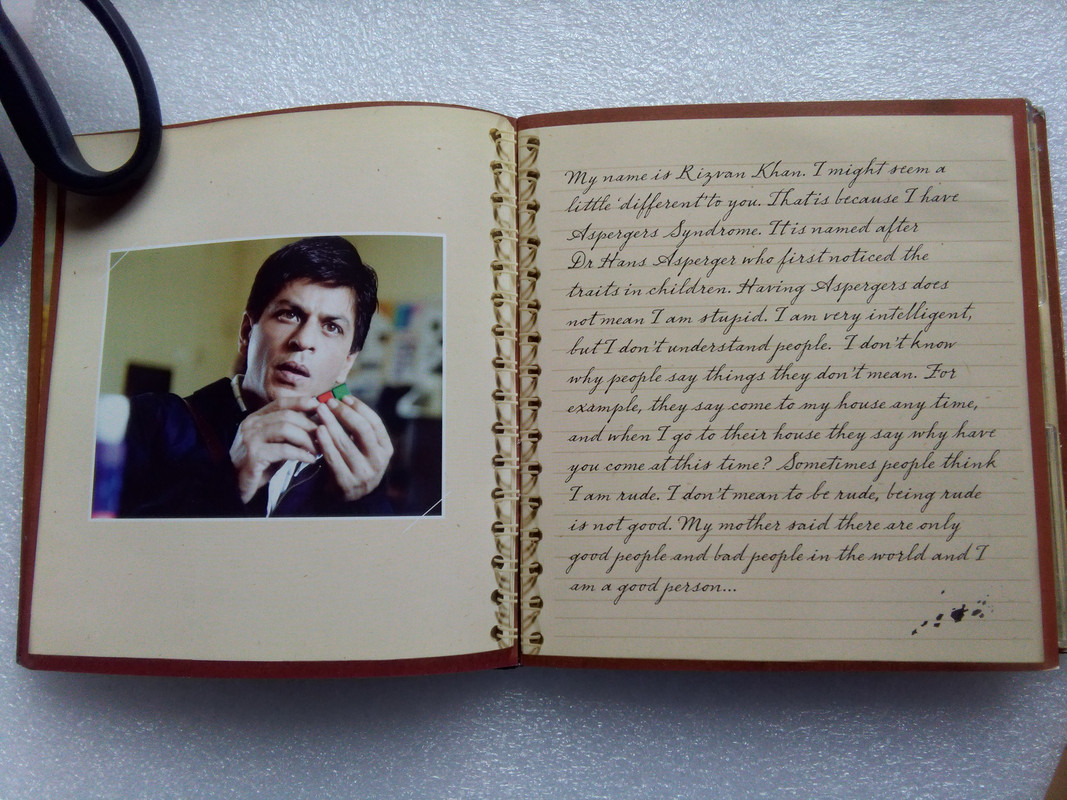 My name is Rizvan Khan. I might seem a
little 'different' to you. That is because I have
Aspergers Syndrome. It is named after
Dr Hans Asperger who first noticed the
traits in children. Having Aspergers does
not mean I am stupid. I am very intelligent,
but I don't understand people. I don't know
why people say things they don't mean. For
example, they say come to my house any time,
and when I go to their house they say why have
you come at this time? Sometimes people think
I am rude. I don't mean to be rude, being rude
is not good. My mother said there are only
good people and bad people in the world and I
am a good person...